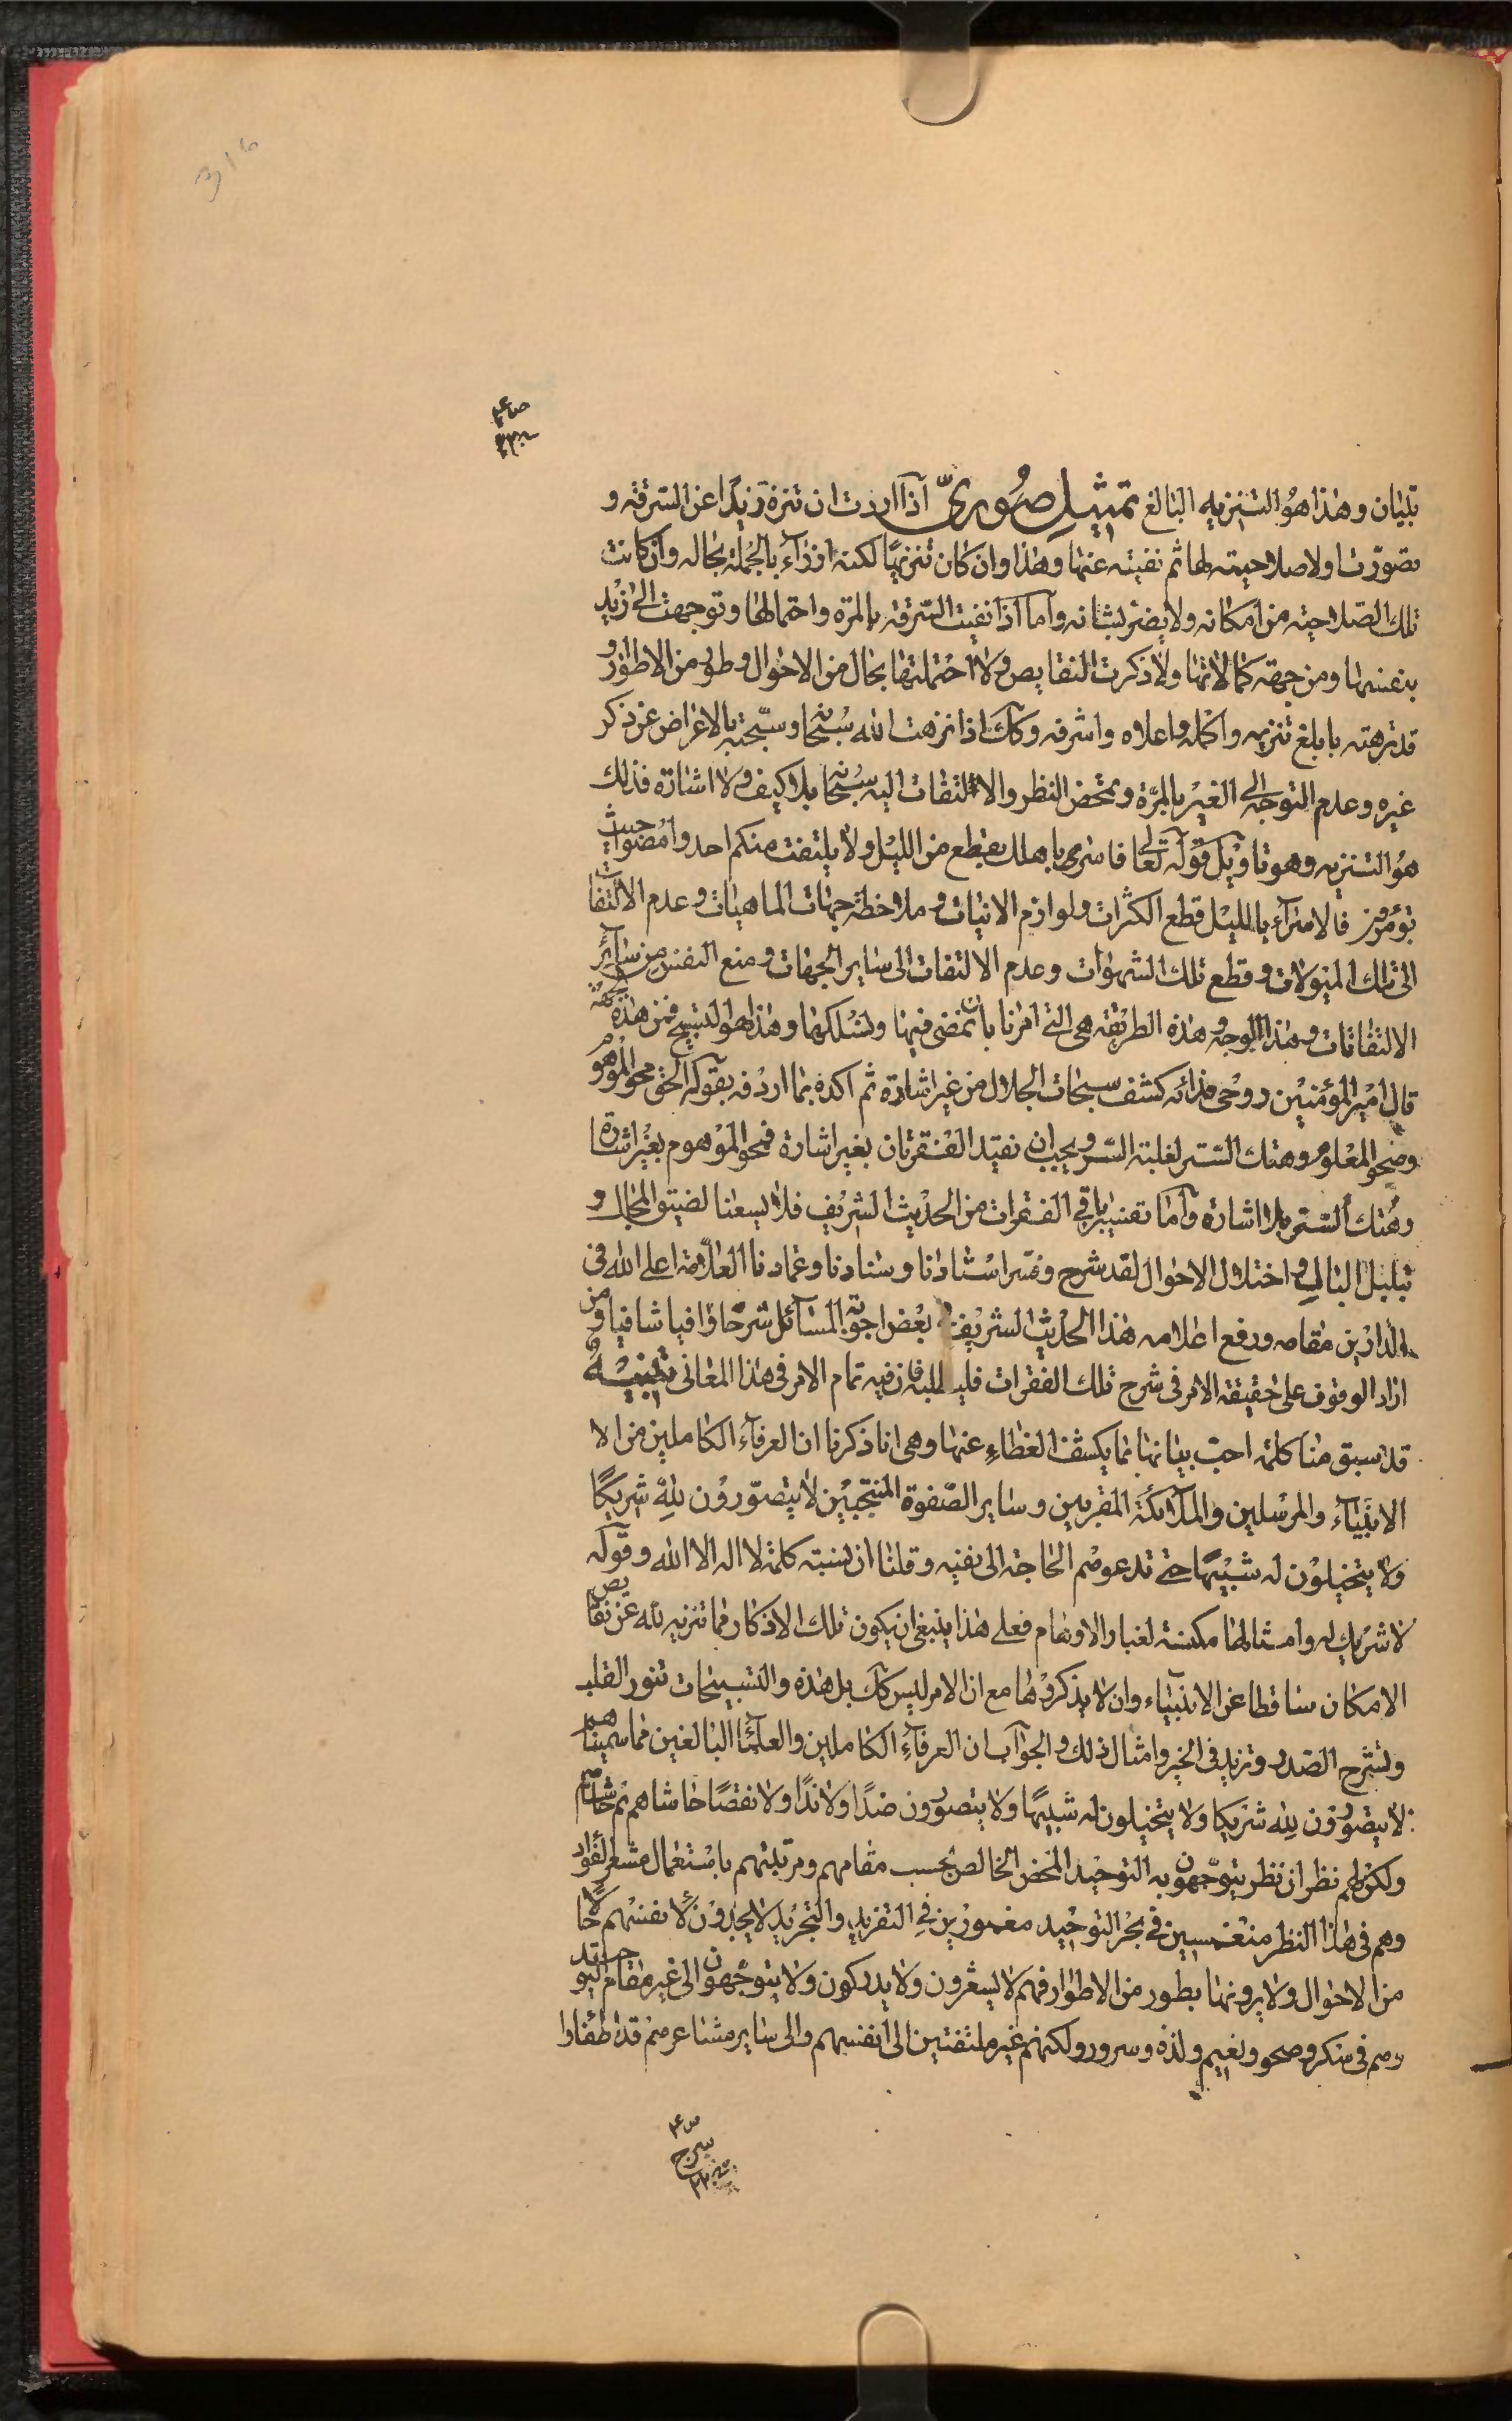 ص ع
تليان وهذا هو التنزيه البالغ تمثيل صوريّ اذا اردت ان تنزه زيدًا عن السرقة و
تصوّرتها اولا صلاحيته لها ثم نفيته عنها وهذا وان كان تنزيهًا لكنه ازراء بالجملة بحاله وان كانت
تلك الصلاحية من امكانه ولا يضر بشانه واما اذا نفيت السرقة بالمرة واحتمالها وتوجهت الى زيد
بنفسها ومن جهة كمالاتها ولا ذكرت النقايص ولا احتملتها بحال من الاحوال وطور من الاطوار و
قد نزهته بابلغ تنزيه واكمله واعلاه واشرفه وكك اذا نزهت الله سبحانه وسبّحته بالاعراض عن ذكر
غيره وعدم التوجه الى الغير بالمرّة وتمحض النظر والالتفات اليه سبحانه بلا كيف ولا اشارة فذلك
هو التنزيه وهو تاويل قوله تعالى فاسر باهلك بقطع من الليل ولا يلتفت منكم احد وامضوا حيث
تؤمرون فالاسراء بالليل قطع الكثرات ولوازم الانيات وملاحظة جهات الماهيات وعدم الالتفات
الى تلك الميولات وقطع تلك الشهوات وعدم الالتفات الى ساير الجهات ومنع النفس من ساير
الالتفاتات وهذا الوجه وهذه الطريقة هى التى امرنا بان نمضى فيها ونسلكها وهذا هو التسبيح فمن هذه الجهة
قال امير المؤمنين روحى فداه كشف سبحات الجلال من غير اشارة ثم اكده بما اردفه بقوله الحق محو الموهوم
وصحو المعلوم وهتك الستر لغلبة السر ويجب ان نقيد الفقرتان بغير اشارة فمحو الموهوم بغير اشارة
وهتك الستر بلا اشارة واما تفسير باقى الفقرات من الحديث الشريف فلا يسعنا لضيق المجال و
تبلبل البال واختلال الاحوال لقد شرح وفسر استادنا وسنادنا وعمادنا العلّامة اعلى الله فى
الدارين مقامه ورفع اعلامه هذا الحديث الشريف بعض اجوبة المسائل شرحًا وافيا شافيا ومن
اراد الوقوف على حقيقة الامر فى شرح تلك الفقرات فليطلبه فان فيه تمام الامر فى هذا المعانى تنبيه
قد سبق منا كلمة احب بيانها بما يكشف الغطاء عنها وهى انا ذكرنا ان العرفاء الكاملين من الا
الانبياء والمرسلين والملائكة المقربين وساير الصفوة المنتجبين لا يتصوّرون لله شريكًا
ولا يتخيلون له شبيهًا حتى تدعوهم الحاجة الى نفيه وقلنا ان نسبة كلمة لا اله الا الله وقوله
لا شريك له وامثالها مكنسة لغبار الاوهام فعلى هذا ينبغى ان يكون تلك الاذكار فما تنزيه لله عن نقايص
الامكان ساقطا عن الانبياء وان لا يذكروها مع ان الامر ليس كك بل هذه والتسبيحات تنور القلب
وتشرح الصدر وتزيد فى الخير وامثال ذلك والجواب ان العرفاء الكاملين والعلماء البالغين فما سميناهم
لا يتصورون لله شريكا ولا يتخيلون له شبيهًا ولا يتصورون ضدًا ولا ندًا ولا نقصًا حاشاهم ثم حاشاهم
ولكن لهم نظران نظر يتوجّهون به التوحيد المحض الخالص بحسب مقامهم ومرتبتهم باستعمال مشعر الفؤاد
وهم فى هذا النظر منغمسين فى بحر التوحيد مغمورين فى التفريد والتجريد لا يجدون لانفسهم حالًا
من الاحوال ولا يرونها بطور من الاطوار فهم لا يشعرون ولا يدركون ولا يتوجهون الى غير مقام التوحيد
وهم فى سكر وصحو ونعيم ولذة وسرور ولكنهم غير ملتفتين الى انفسهم والى ساير مشاعرهم قد اطفاوا